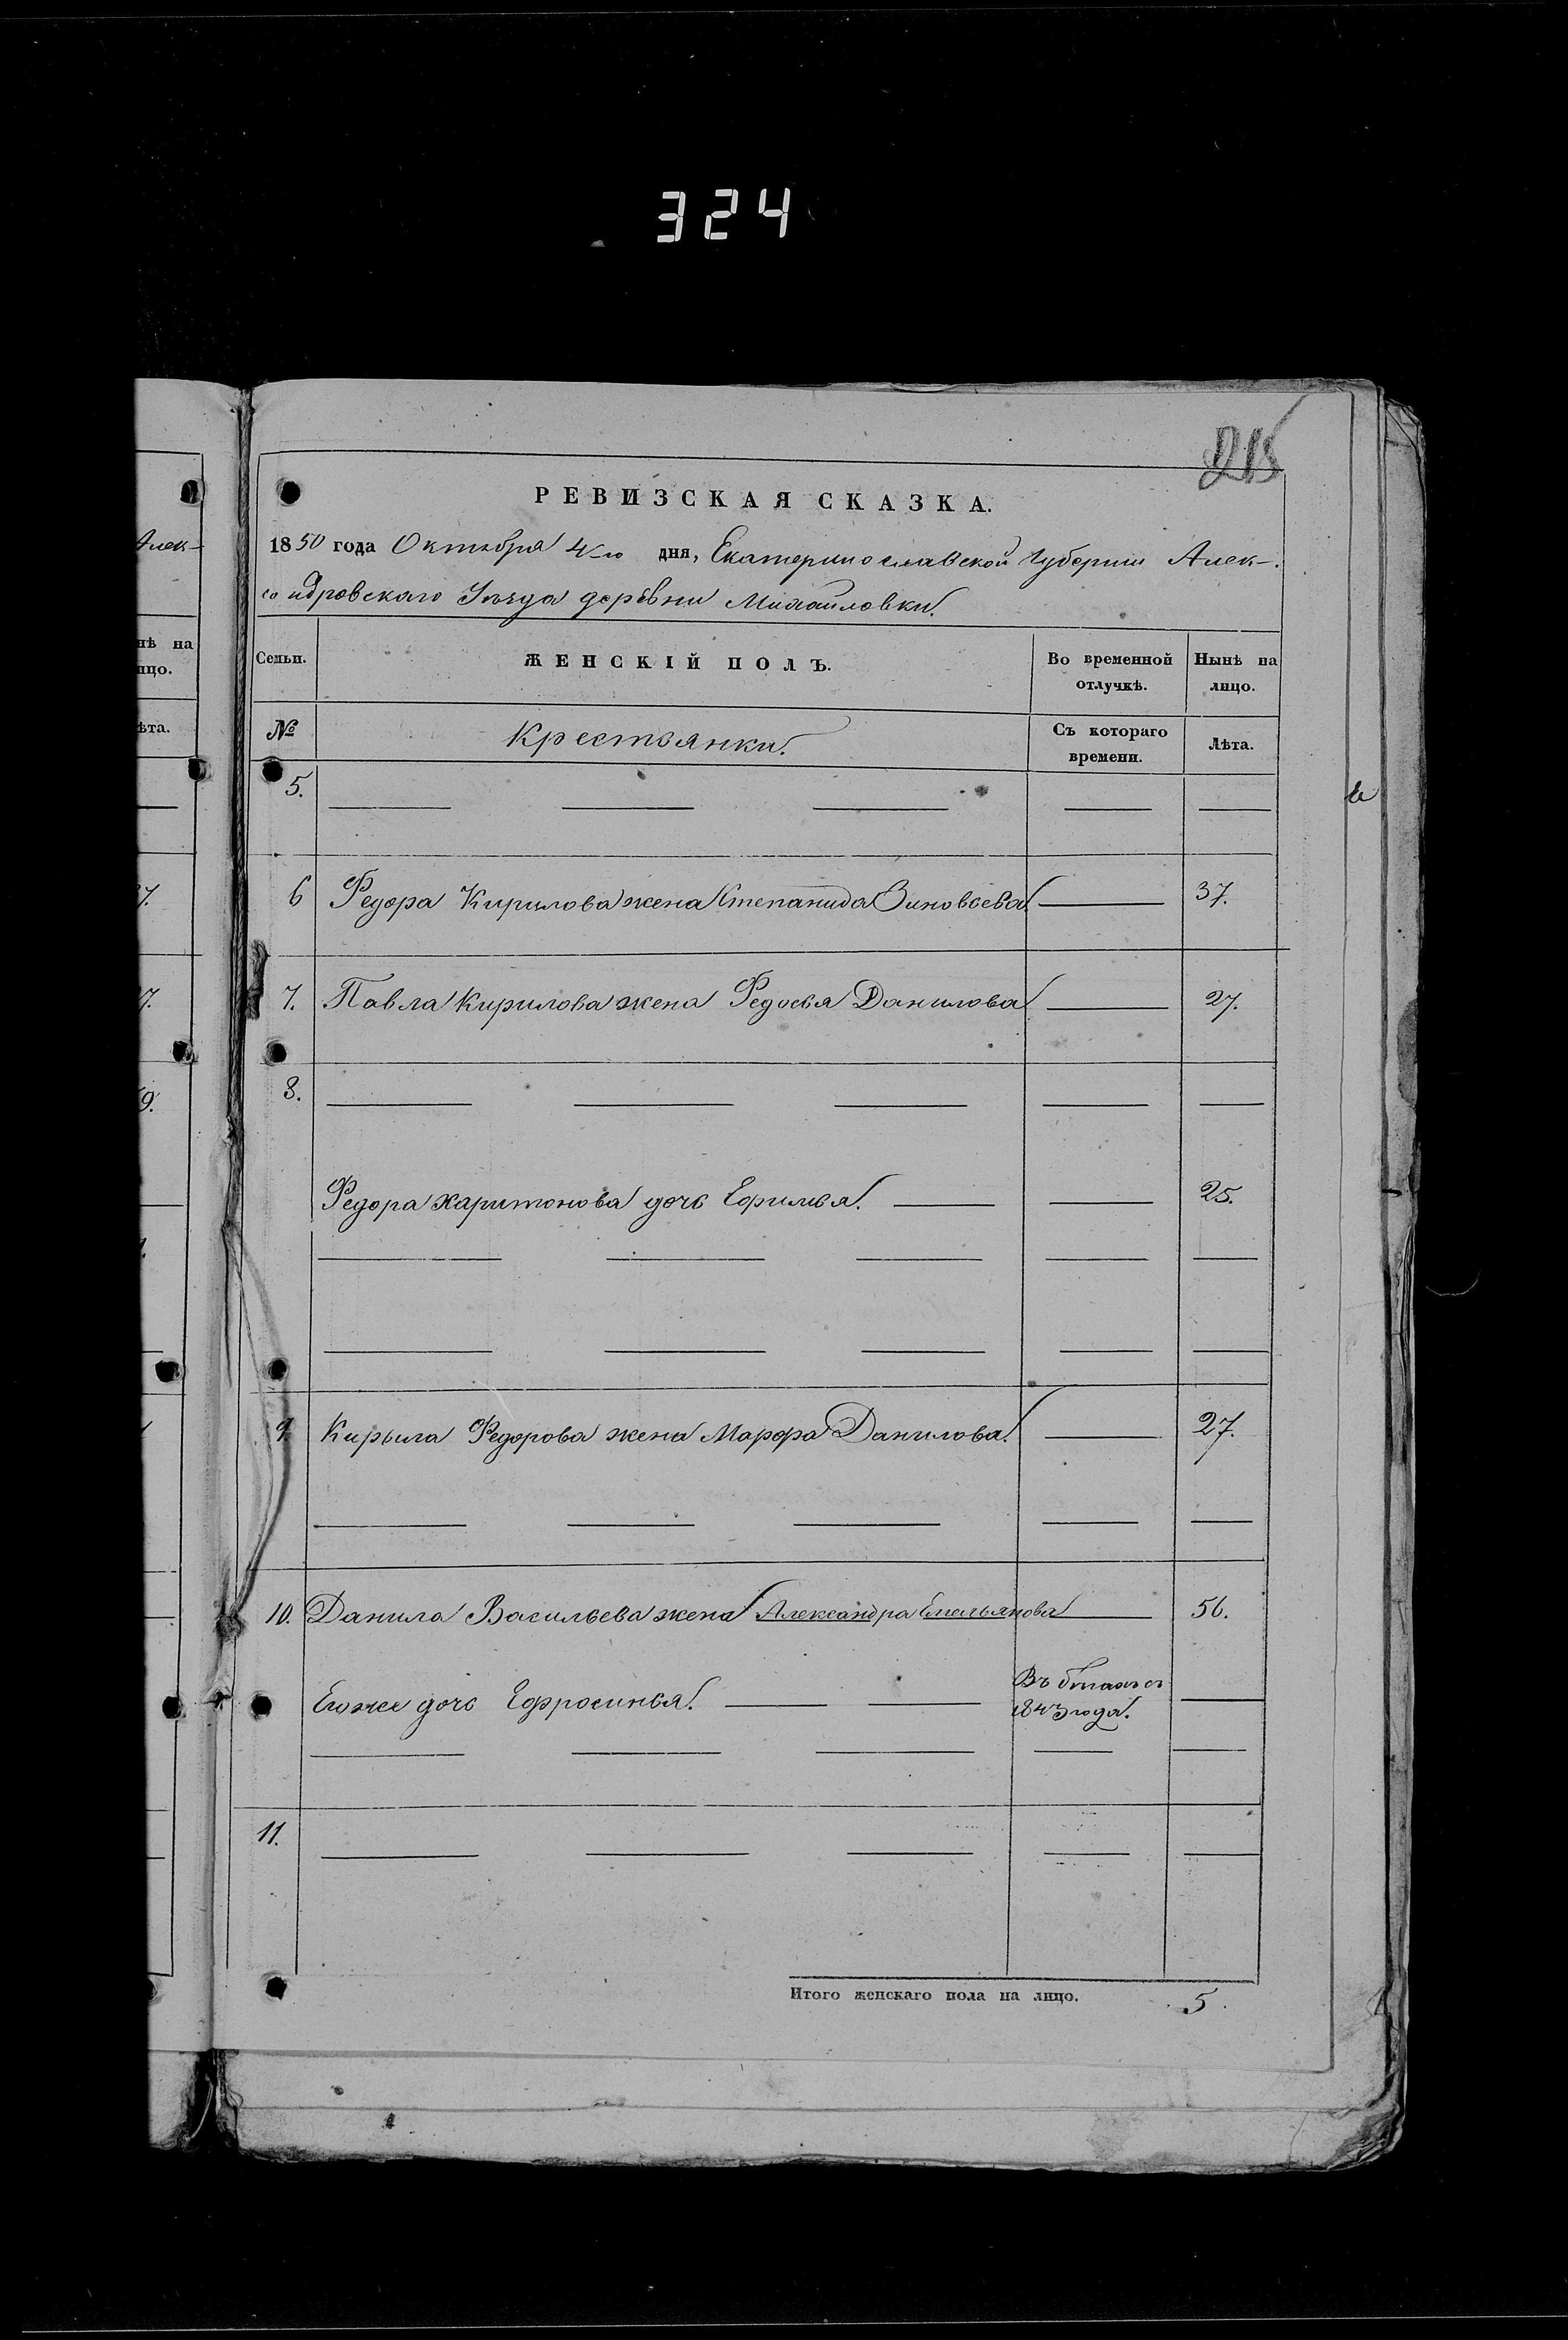 324
215
РЕВИЗСКАЯ СКАЗКА.
1850 года Октября 4го дня, Екатеринославской Губернии Алек-
сандровскаго Уѣзда деревни Михайловки.
Семьи.
ЖЕНСКІЙ ПОЛЪ.
Во временной отлучкѣ.
Нынѣ на лицо.
№
Крестьянки.
Съ котораго времени.
Лѣта.
5.
6 Федора Кирилова жена Степанида Зиновьева. 37.
7. Павла Кирилова жена Федосья Данилова 27.
8.
Федора Харитонова дочь Ефимья. 25.
9 Кирыла Федорова жена Марфа Данилова. 27.
10. Данила Васильева жена Александра Емельянова 56.
Егоже дочь Ефросинья. Въ бѣгахъ съ
1843 года.
11.
Итого женскаго пола на лицо. 5.
Алек-
нѣ на
ицо.
ѣта.
7.
7.
9.